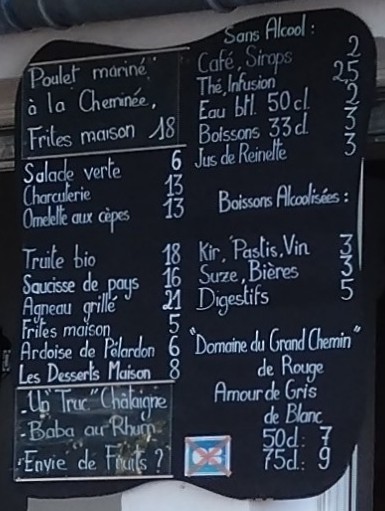 Poulet mariné
à la Cheminée,
Frites maison 18
Salade verte 6
Charcuterie 13
Omelette aux cèpes 13
Truite bio 18
Saucisse de pays 16
Agneau grillé 21
Frites maison 5
Ardoise de Pélardon 6
Les Desserts Maison 8
- Un "Truc" Châtaigne
- Baba au Rhum
- Envie de Fruits ?
Sans Alcool :
Café, Sirops 2
Thé, Infusion 2,5
Eau btl. 50 cl 2
Boissons 33 cl 3
Jus de Reinette 3
Boissons Alcoolisées :
Kir, Pastis, Vin 3
Suze, Bières 3
Digestifs 5
"Domaine du Grand Chemin"
de Rouge
Amour de Gris
de Blanc
50cl: 7
75cl: 9